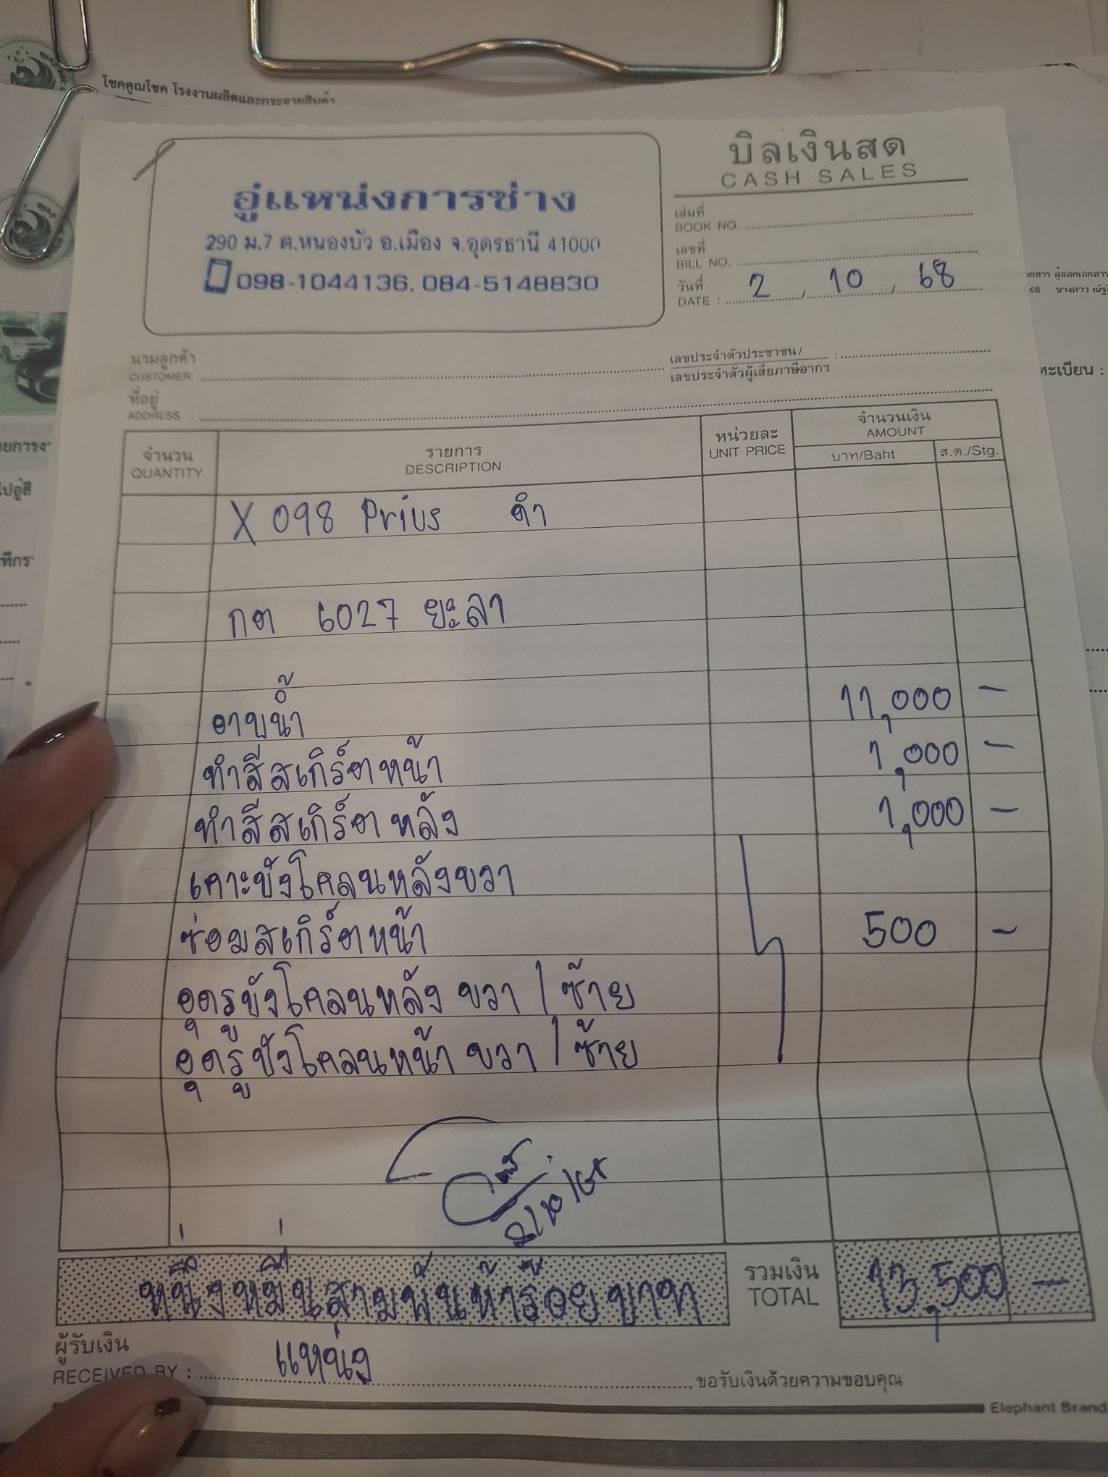 โชคคูณโชค โรงงานผลิตและกระจายสินค้า
บิลเงินสด
CASH SALES
อู่แหน่งการช่าง
290 ม.7 ต.หนองบัว อ.เมือง จ.อุดรธานี 41000
098-1044136, 084-5148830
เล่มที่
BOOK NO.
เลขที่
BILL NO.
วันที่
DATE : 2 / 10 / 68
นามลูกค้า
CUSTOMER:
เลขประจำตัวประชาชน/
เลขประจำตัวผู้เสียภาษีอากร
ที่อยู่
ADDRESS :
ทะเบียน :
จำนวน
QUANTITY
รายการ
DESCRIPTION
หน่วยละ
UNIT PRICE
จำนวนเงิน
AMOUNT
บาท/Baht ส.ต./Stg.
X 098 Prius ดำ
กต 6027 ยะลา
อาบน้ำ 11,000 -
ทำสีสเกิร์ตหน้า 1,000 -
ทำสีสเกิร์ตหลัง 1,000 -
เคาะบังโคลนหลังขวา
ซ่อมสเกิร์ตหน้า 500 -
อุดรูบังโคลนหลัง ขวา / ซ้าย
อุดรูบังโคลนหน้า ขวา / ซ้าย
2/10/68
หนึ่งหมื่นสามพันห้าร้อยบาท
รวมเงิน
TOTAL
13,500 -
ผู้รับเงิน
RECEIVED BY : แหน่ง
ขอรับเงินด้วยความขอบคุณ
Elephant Brand